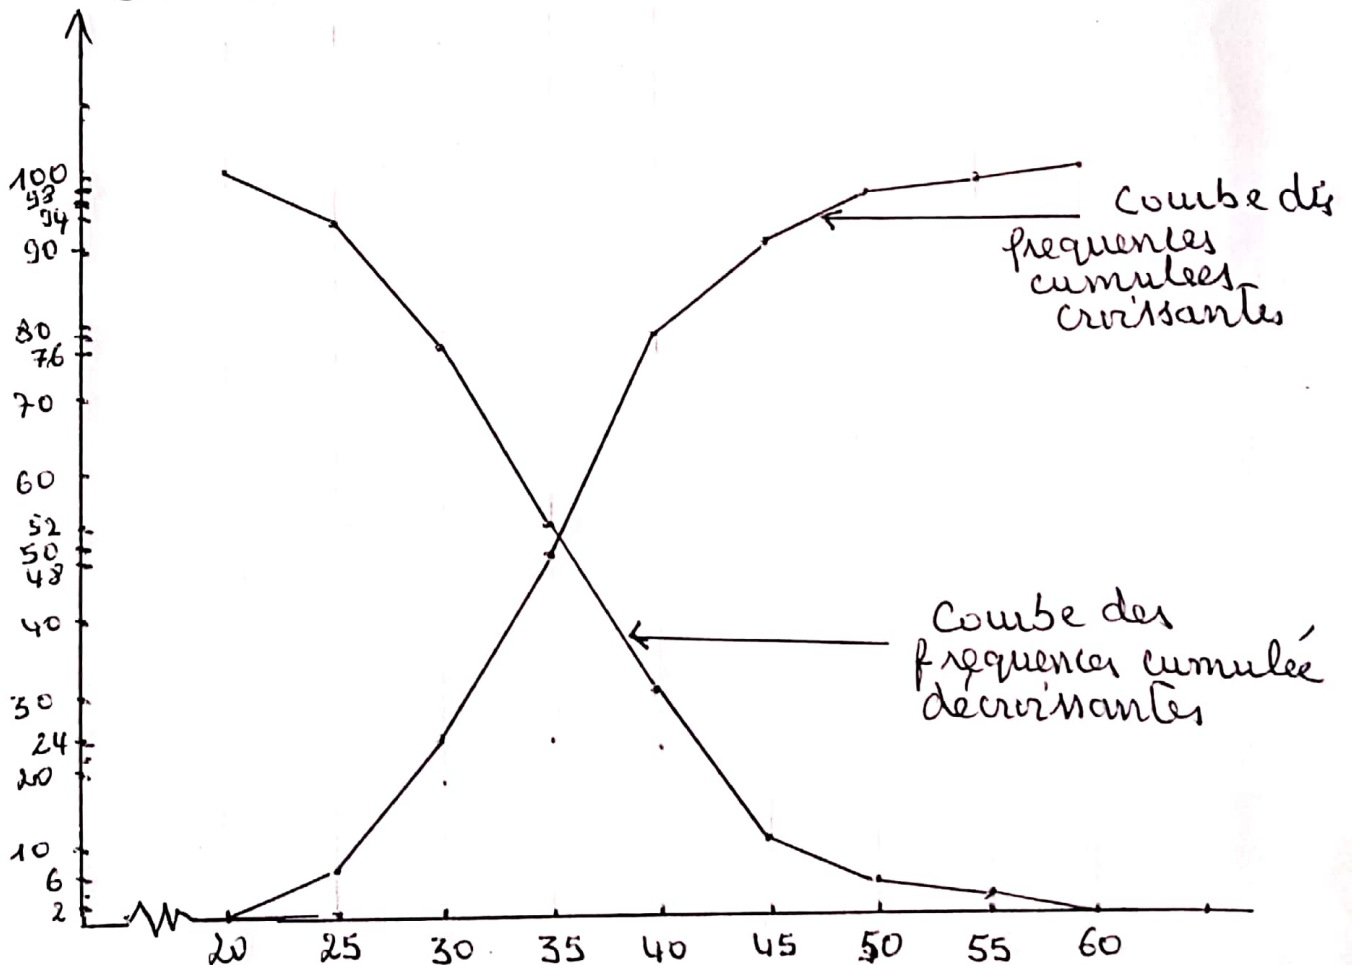 100
98
94
90
80
76
70
60
52
50
48
40
30
24
20
10
6
2
20 25 30 35 40 45 50 55 60
Courbe des
frequences
cumulees
croissantes
Courbe des
frequences cumulée
décroissantes